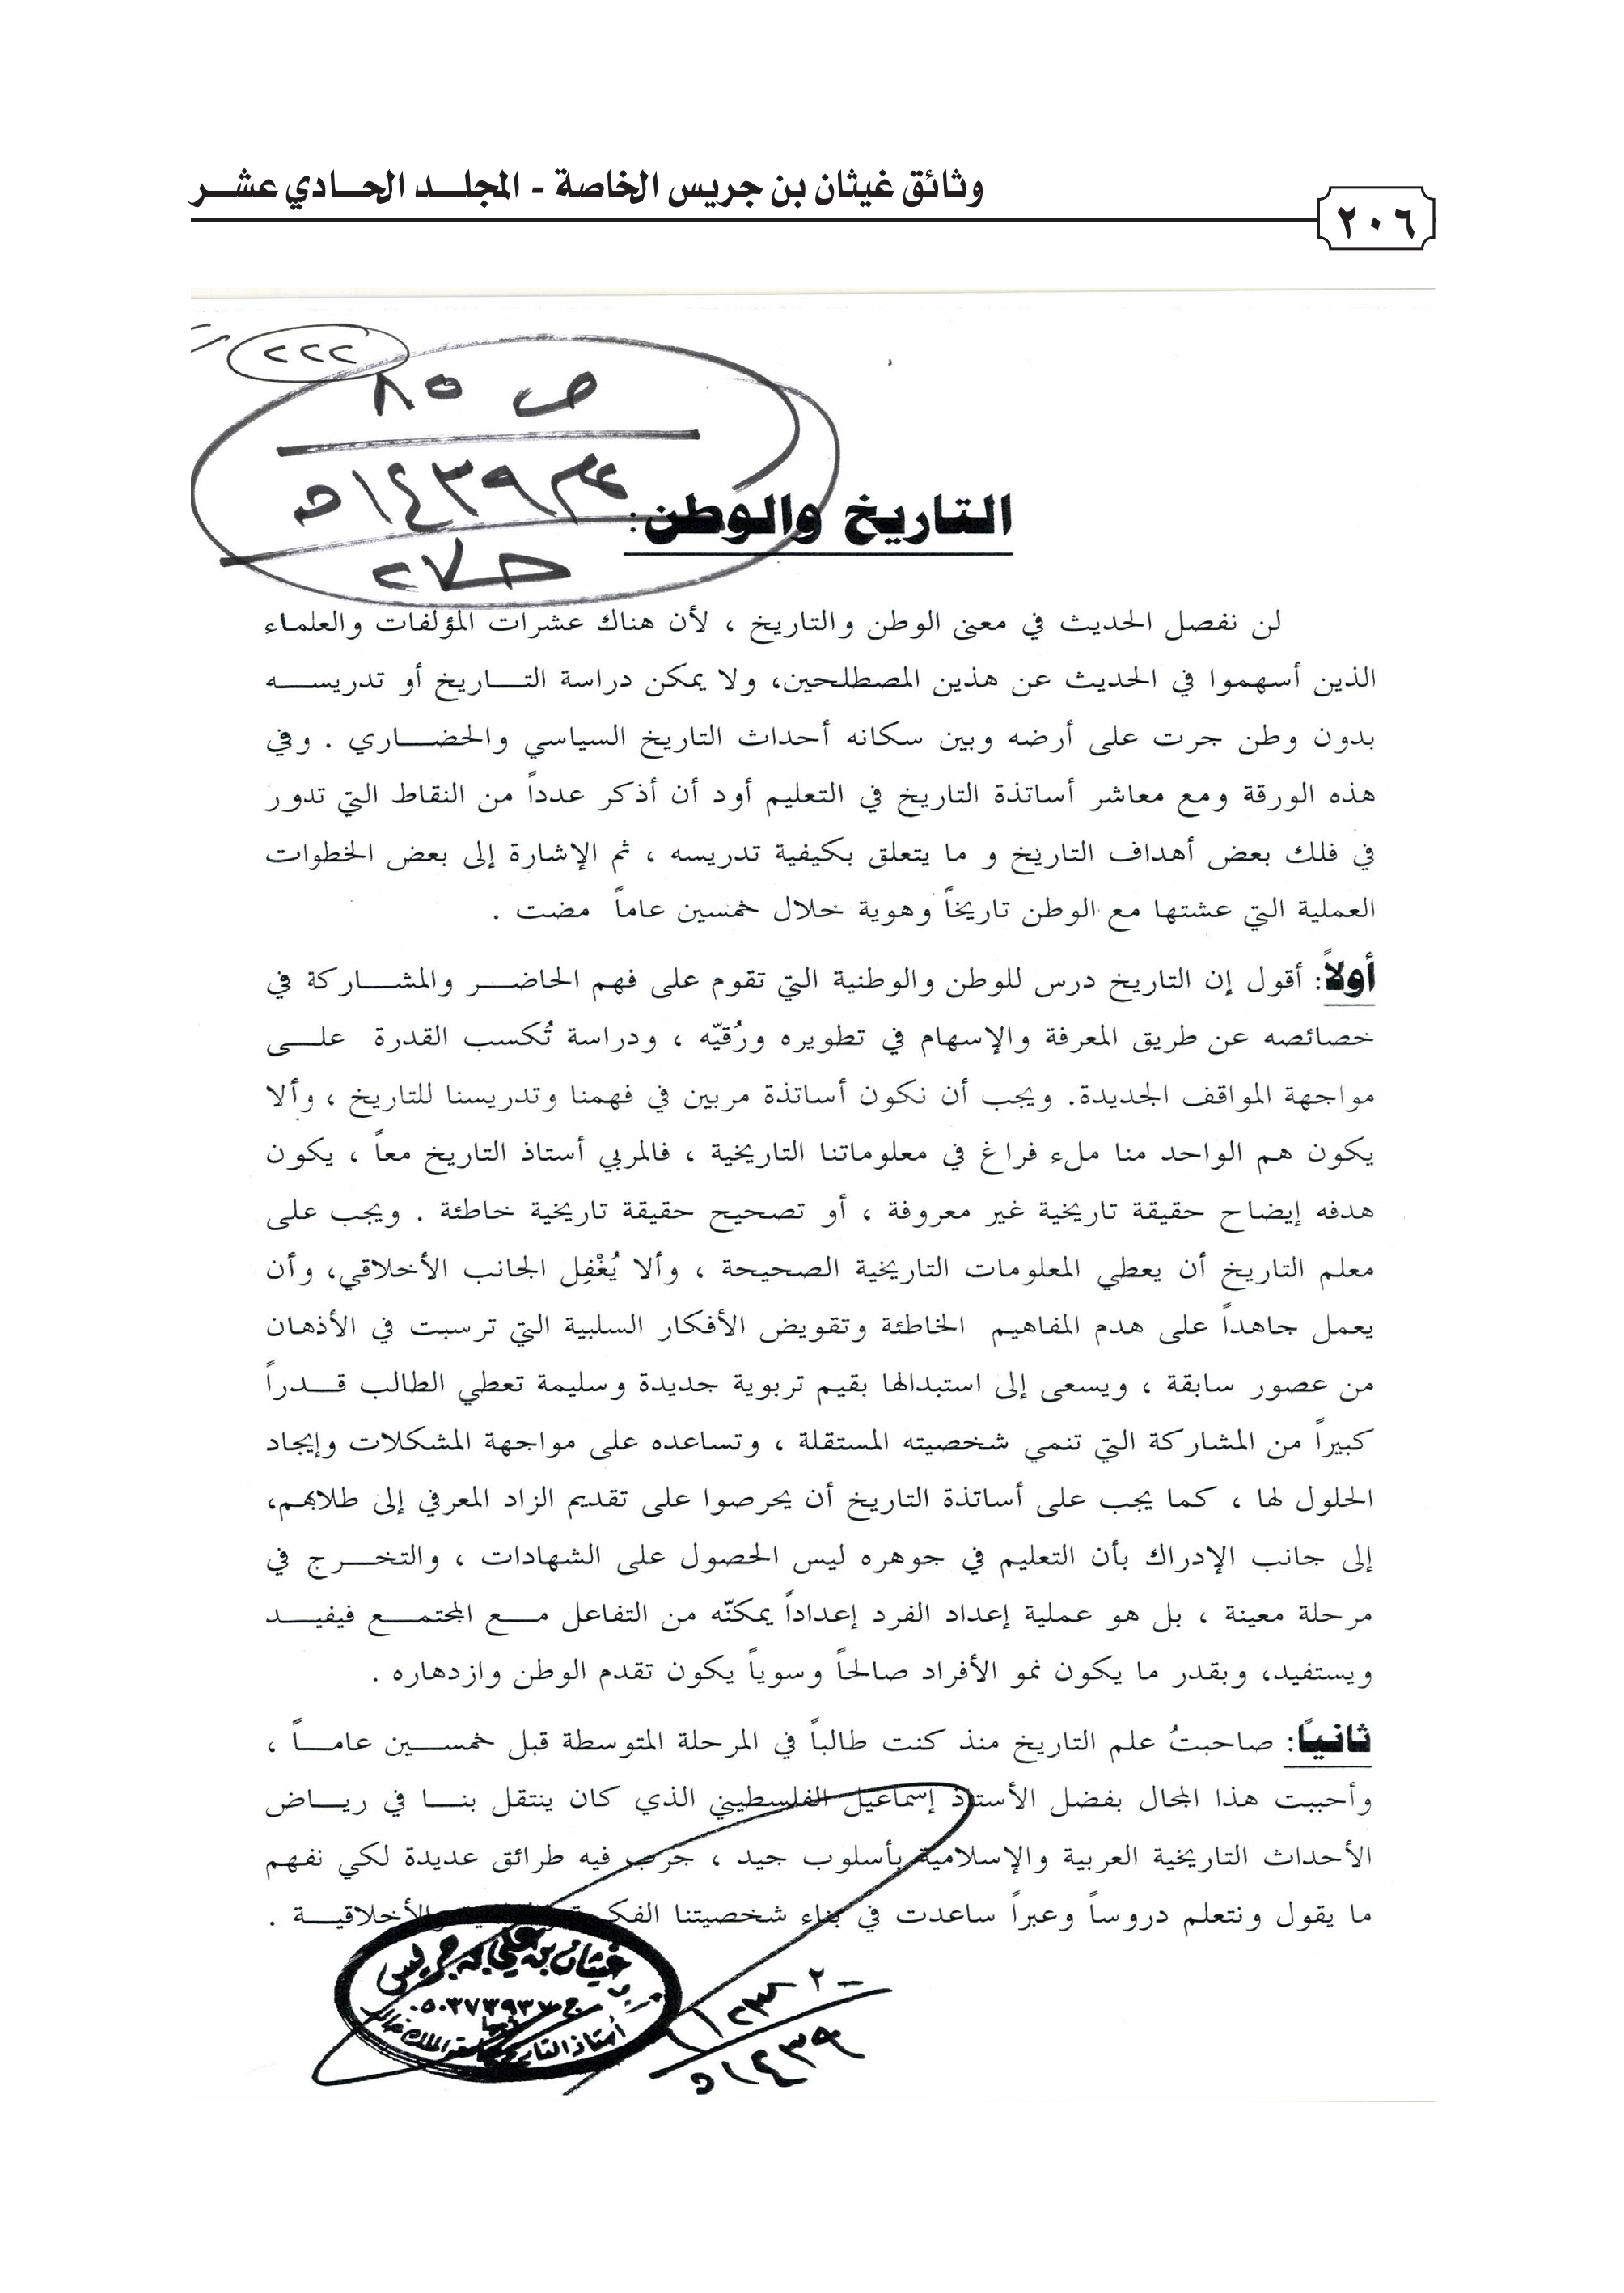 وثائق غيثان بن جريس الخاصة - المجلد الحادي عشر
٢٠٦
٢٢٢
ص ٨٥
١٤٣٩هـ
التاريخ والوطن:
لن نفصل الحديث في معنى الوطن والتاريخ ، لأن هناك عشرات المؤلفات والعلماء
الذين أسهموا في الحديث عن هذين المصطلحين، ولا يمكن دراسة التاريخ أو تدريسه
بدون وطن جرت على أرضه وبين سكانه أحداث التاريخ السياسي والحضاري . وفي
هذه الورقة ومع معاشر أساتذة التاريخ في التعليم أود أن أذكر عدداً من النقاط التي تدور
في فلك بعض أهداف التاريخ و ما يتعلق بكيفية تدريسه ، ثم الإشارة إلى بعض الخطوات
العملية التي عشتها مع الوطن تاريخاً وهوية خلال خمسين عاماً مضت .
أولاً: أقول إن التاريخ درس للوطن والوطنية التي تقوم على فهم الحاضر والمشاركة في
خصائصه عن طريق المعرفة والإسهام في تطويره ورُقيّه ، ودراسة تُكسب القدرة على
مواجهة المواقف الجديدة. ويجب أن نكون أساتذة مربين في فهمنا وتدريسنا للتاريخ ، وألا
يكون هم الواحد منا ملء فراغ في معلوماتنا التاريخية ، فالمربي أستاذ التاريخ معاً ، يكون
هدفه إيضاح حقيقة تاريخية غير معروفة ، أو تصحيح حقيقة تاريخية خاطئة . ويجب على
معلم التاريخ أن يعطي المعلومات التاريخية الصحيحة ، وألا يُغْفِل الجانب الأخلاقي، وأن
يعمل جاهداً على هدم المفاهيم الخاطئة وتقويض الأفكار السلبية التي ترسبت في الأذهان
من عصور سابقة ، ويسعى إلى استبدالها بقيم تربوية جديدة وسليمة تعطي الطالب قدراً
كبيراً من المشاركة التي تنمي شخصيته المستقلة ، وتساعده على مواجهة المشكلات وإيجاد
الحلول لها ، كما يجب على أساتذة التاريخ أن يحرصوا على تقديم الزاد المعرفي إلى طلابهم،
إلى جانب الإدراك بأن التعليم في جوهره ليس الحصول على الشهادات ، والتخرج في
مرحلة معينة ، بل هو عملية إعداد الفرد إعداداً يمكنّه من التفاعل مع المجتمع فيفيد
ويستفيد، وبقدر ما يكون نمو الأفراد صالحاً وسوياً يكون تقدم الوطن وازدهاره .
ثانياً: صاحبتُ علم التاريخ منذ كنت طالباً في المرحلة المتوسطة قبل خمسين عاماً ،
وأحببت هذا المجال بفضل الأستاذ إسماعيل الفلسطيني الذي كان ينتقل بنا في رياض
الأحداث التاريخية العربية والإسلامية بأسلوب جيد ، جرب فيه طرائق عديدة لكي نفهم
ما يقول ونتعلم دروساً وعبراً ساعدت في بناء شخصيتنا الأخلاقية .
غيثان بن علي بن جريس
أستاذ التاريخ الملك خالد
١٤٣٩هـ